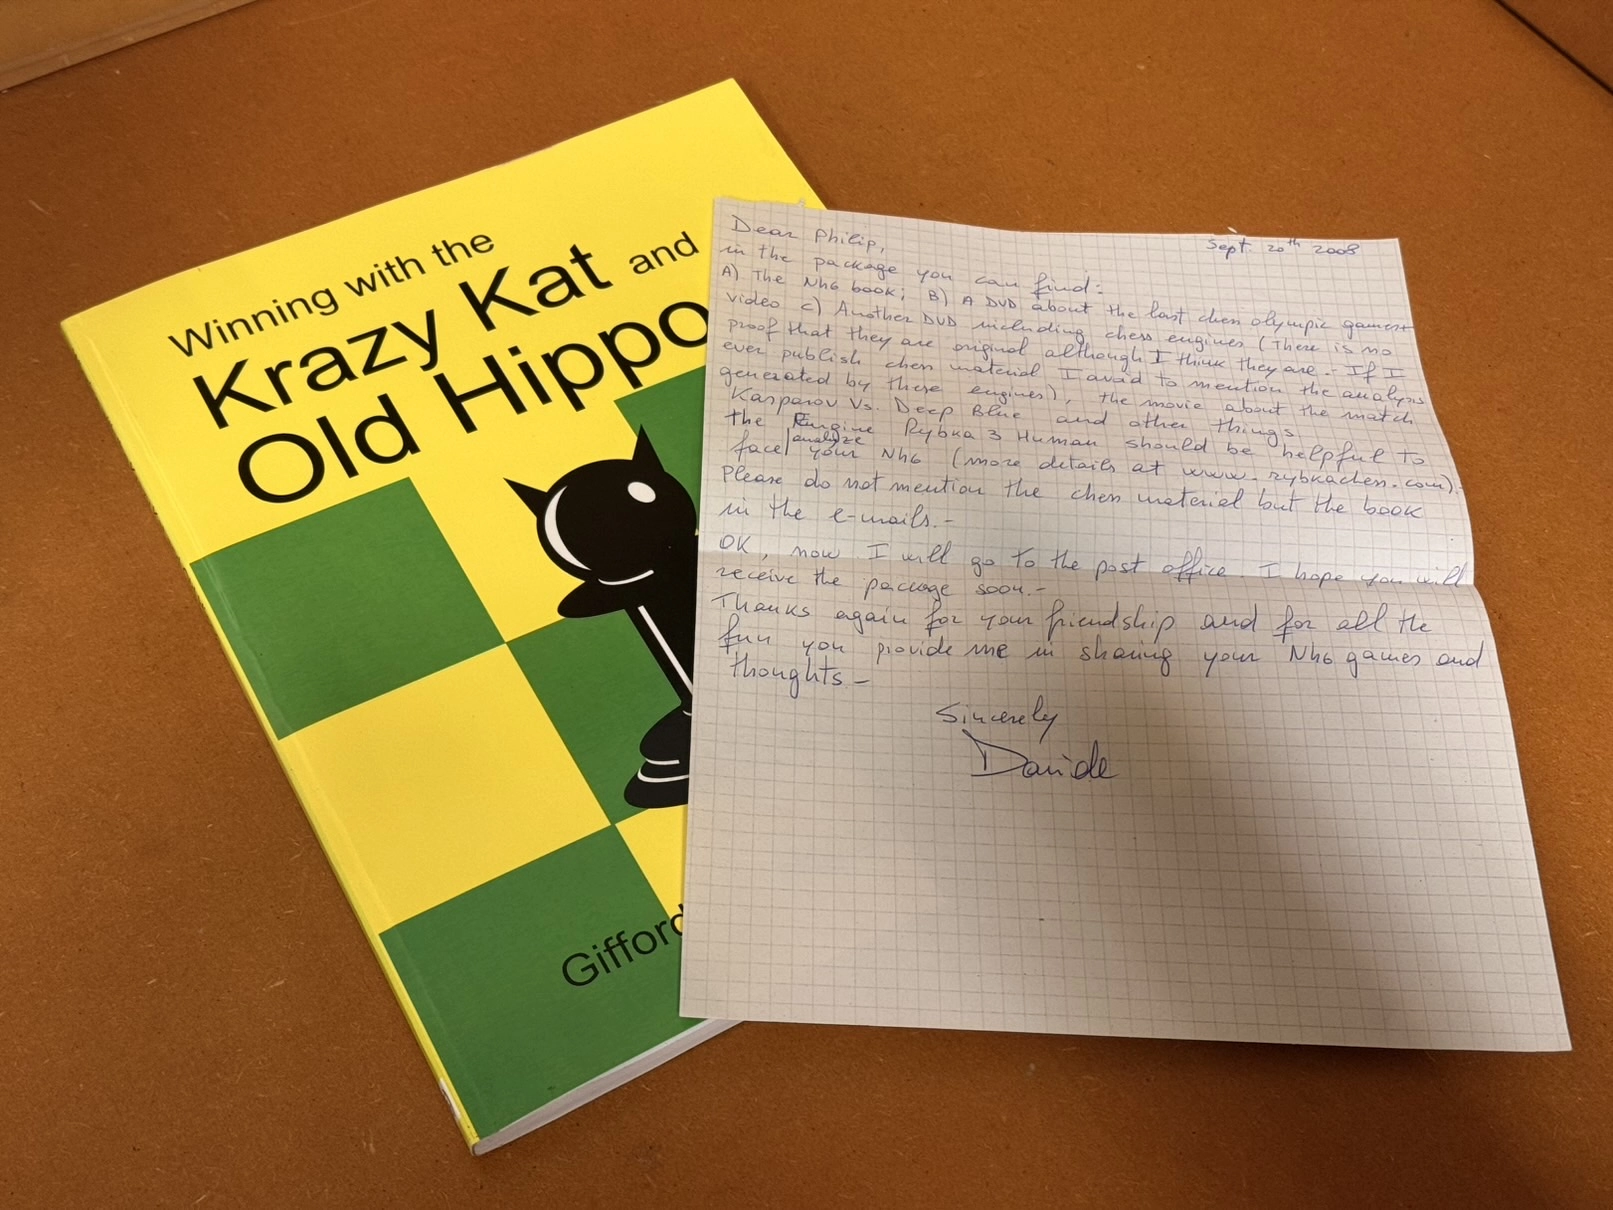 Winning with the
Krazy Kat and
Old Hippo
Gifford
Sept. 20th 2008
Dear Philip,
in the package you can find:
A) The Nh6 book; B) A DVD about the last chess olympic games+
video C) Another DVD including chess engines (There is no
proof that they are original although I think they are.- If I
ever publish chess material I avoid to mention the analysis
generated by these engines), the movie about the match
Kasparov Vs. Deep Blue and other things
the Engine Rybka 3 Human should be helpful to
face/analyze your Nh6 (more details at www.rybkachess.com).
Please do not mention the chess material but the book
in the e-mails.-
OK, now I will go to the post office. I hope you will
receive the package soon.-
Thanks again for your friendship and for all the
fun you provide me in sharing your Nh6 games and
thoughts-
Sincerely
Davide